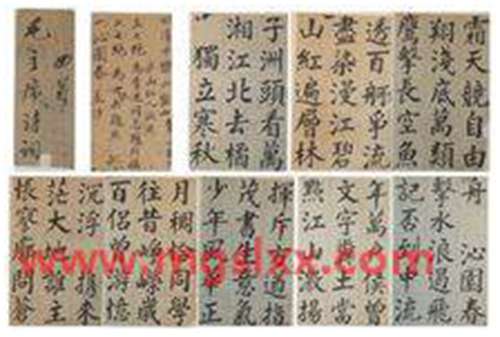 毛主席詩詞
獨立寒秋
湘江北去橘
子洲頭看萬
山紅遍層林
盡染漫江碧
透百舸爭流
鷹擊長空魚
翔淺底萬類
霜天競自由
悵寥廓問蒼
茫大地誰主
沉浮 攜來
百侶曾游憶
往昔崢嶸歲
月稠恰同學
少年風華正
茂書生意氣
揮斥方遒指
點江山激揚
文字糞土當
年萬戶侯曾
記否到中流
擊水浪遏飛
舟 沁園春
www.mgslxx.com